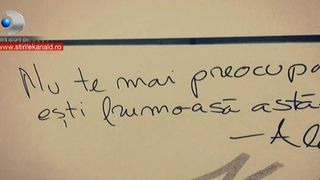 www.stirilekanald.ro
Nu te mai preocupa
ești frumoasă astă
—Al